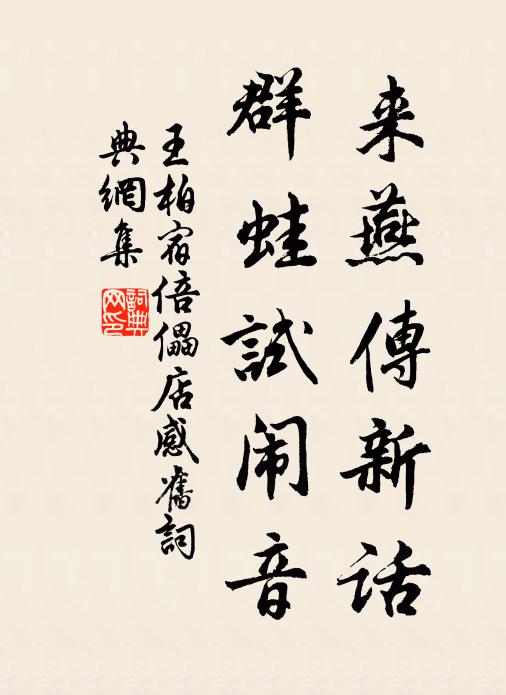 来燕傳新話
群蛙試闹音
王柏宿倍儡店感舊詞
典網集
詞典网印